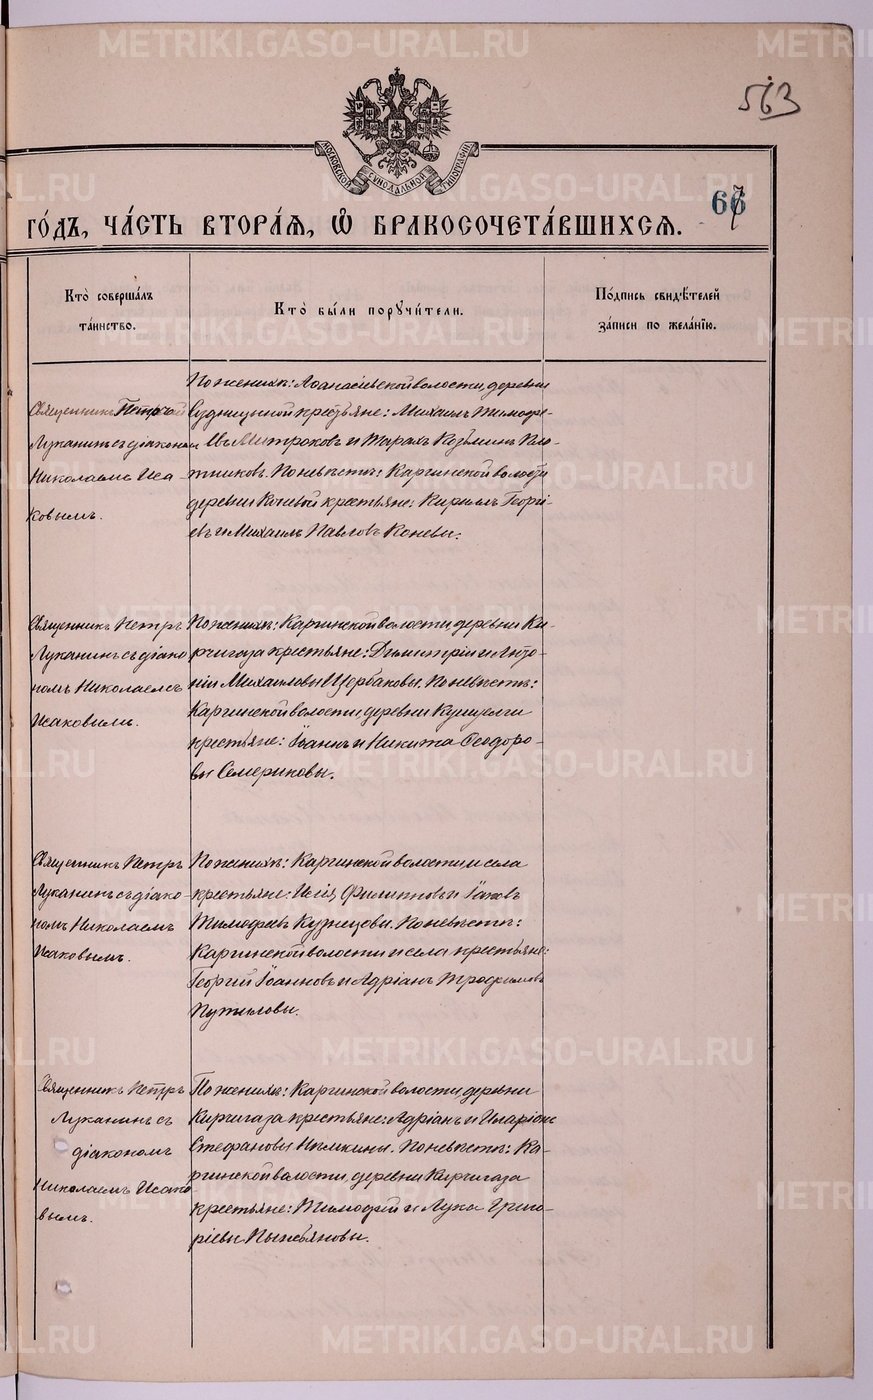 METRIKI.GASO-URAL.RU
563
МОСКОВСКОЙ СѴНОДАЛЬНОЙ ТИПОГРАФІИ
67
го́дъ, ча́сть втора́ѧ, ѽ бракосочета́вшихсѧ.
Кто̀ соверша́лъ
та́инство.
Кто̀ бы́ли порꙋчи́тели.
По́дпись свидѣ́телей
за́писи по жела́нїю.
Священникъ Петръ
Луканинъ съ діакономъ
Николаемъ Иса-
ковымъ.
По женихѣ: Аѳанасіевской волости, деревни
крестьяне: Михаилъ Тимофе-
евъ Митроховъ и Тарахъ Козьминъ Пло-
тниковъ. По невѣстѣ: Каргинской волости
деревни Коневой крестьяне: Кириллъ Георгі-
евъ и Михаилъ Павловъ Коневы.
Священникъ Петръ
Луканинъ съ діако-
номъ Николаемъ
Исаковымъ.
По женихѣ: Каргинской волости, деревни Ки-
рчигаза крестьяне: Димитрій и Анто-
ній Михаиловы Щербаковы. По невѣстѣ:
Каргинской волости, деревни
крестьяне: Іоаннъ и Никита Ѳеодоро-
вы Семериковы.
Священникъ Петръ
Луканинъ съ діако-
номъ Николаемъ
Исаковымъ.
По женихѣ: Каргинской волости и села
крестьяне: Филипповъ и Іаковъ
Тимофеевъ Кузнецовы. По невѣстѣ:
Каргинской волости и села крестьяне:
Георгій Іоанновъ и Адріанъ Трофимовъ
Путиловы.
Священникъ Петръ
Луканинъ съ
діакономъ
Николаемъ Исако
вымъ.
По женихѣ: Каргинской волости, деревни
Кирчигаза крестьяне: Адріанъ и Иларіонъ
Стефановы По невѣстѣ: Ка-
ргинской волости, деревни Кирчигаза
крестьяне: Тимофей и Лука Григо-
ріевы Пыжьяновы.